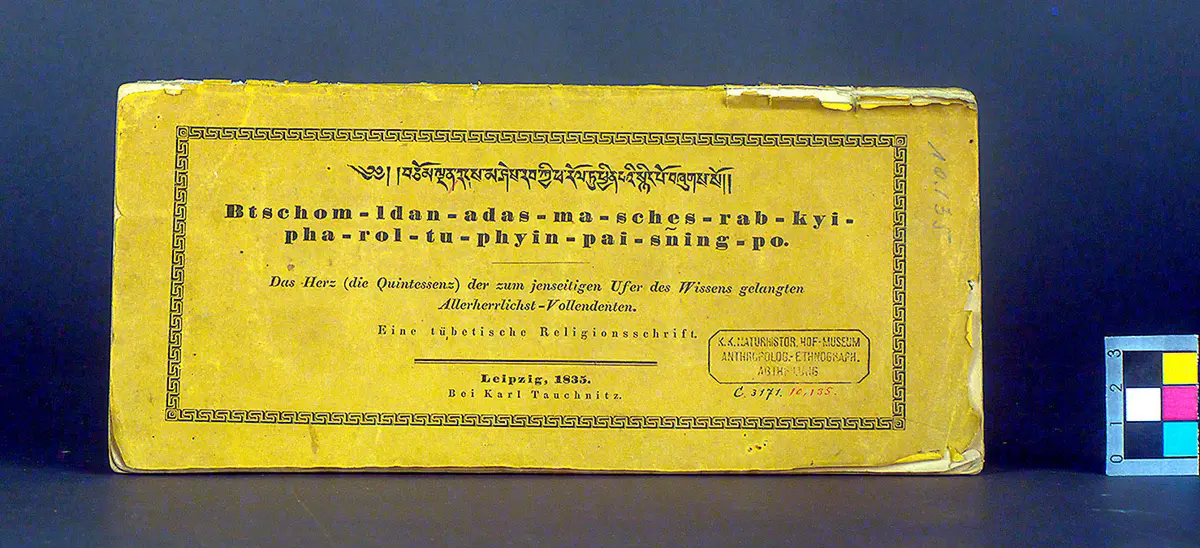 ༄༅། །བཅོམ་ལྡན་འདས་མ་ཤེས་རབ་ཀྱི་ཕ་རོལ་ཏུ་ཕྱིན་པའི་སྙིང་པོ་བཞུགས་སོ།།
Btschom-ldan-adas-ma-sches-rab-kyi-
pha-rol-tu-phyin-pai-sñing-po.
Das Herz (die Quintessenz) der zum jenseitigen Ufer des Wissens gelangten
Allerherrlichst-Vollendenten.
Eine tübetische Religionsschrift.
Leipzig, 1835.
Bei Karl Tauchnitz.
K. K. NATURHISTOR. HOF-MUSEUM
ANTHROPOLOG.-ETHNOGRAPH.
ABTHEILUNG
C. 3171. 10,135.
10.135
0 1 2 3